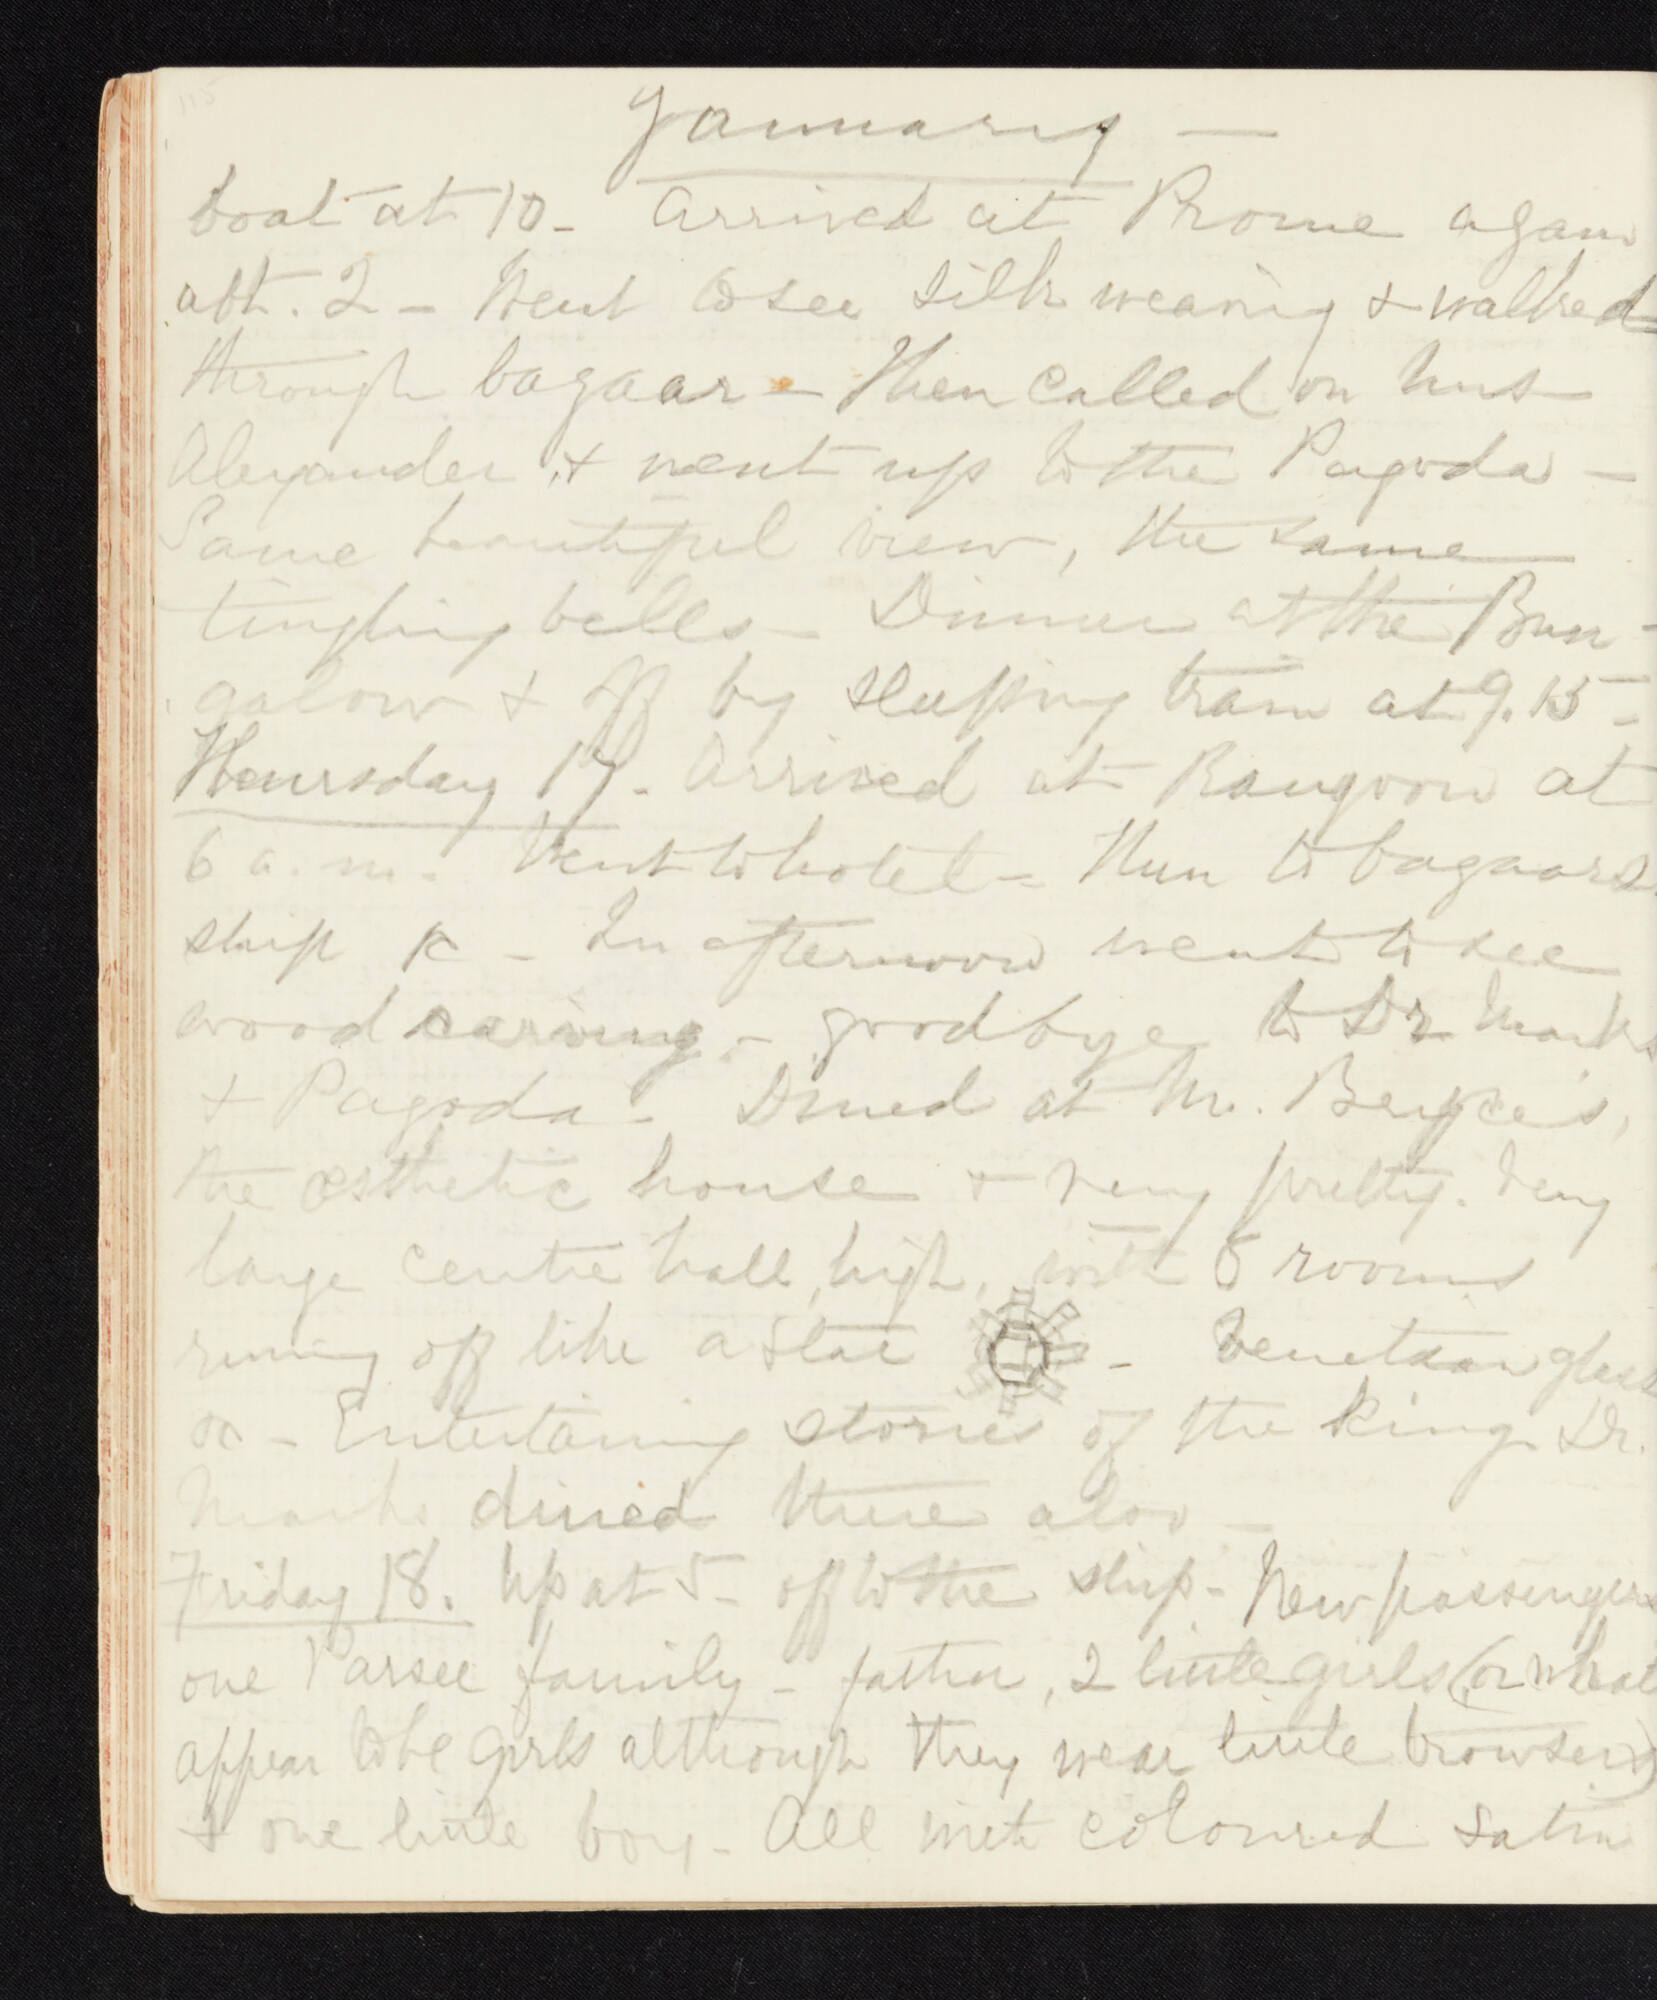 115
January —
boat at 10 - Arrived at Prome again
abt. 2 - Went to see silk weaving & walked
through bazaar - Then called on Mrs
Alexander & went up to the Pagoda -
Same beautiful view, the same
tingling bells - Dinner at the Bun-
galow & off by sleeping train at 9.15 -
Thursday 17. Arrived at Rangoon at
6 a.m. Went to hotel - Then to bazaars
ship &c - In afternoon went to see
wood carving - goodbye to Dr Marks
& Pagoda - Dined at Mr.
the esthetic house & very pretty. Very
large centre hall, high, with 8 rooms
runing off like a star - Venetian glass
&c - Entertaining stories of the King. Dr.
Marks dined there also -
Friday 18. Up at 5 - off to the ship - New passengers
one Parsee family - father, 2 little girls (or what
appear to be girls although they wear little trowsers)
& one little boy - All with coloured satin